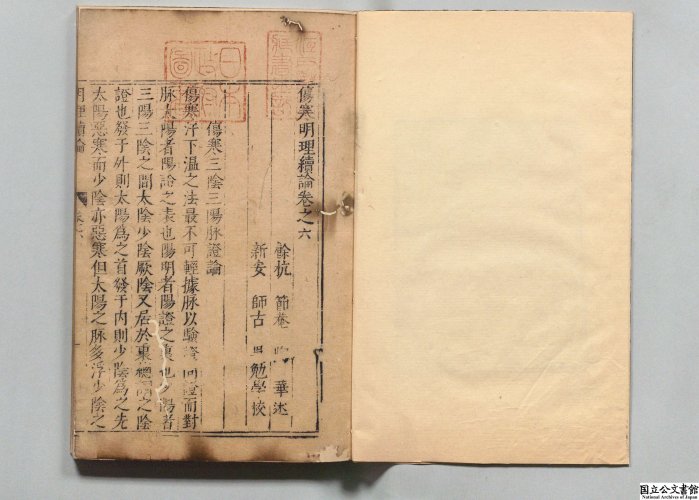 傷寒明理續論卷之六
餘杭 節菴 華述
新安 師古 勉學校
傷寒三陰三陽脉證論
傷寒汗下溫之法最不可輕據脉以驗證 證而對
脉太陽者陽證之表也陽明者陽證之裏也少陽者
三陽三陰之間太陰少陰厥陰又居於裏總謂之陰
證也發于外則太陽為之首發于内則少陰為之先
太陽惡寒而少陰亦惡寒但太陽之脉多浮少陰之
明理續論
卷六
日本
國立公文書館
National Archives of Japan